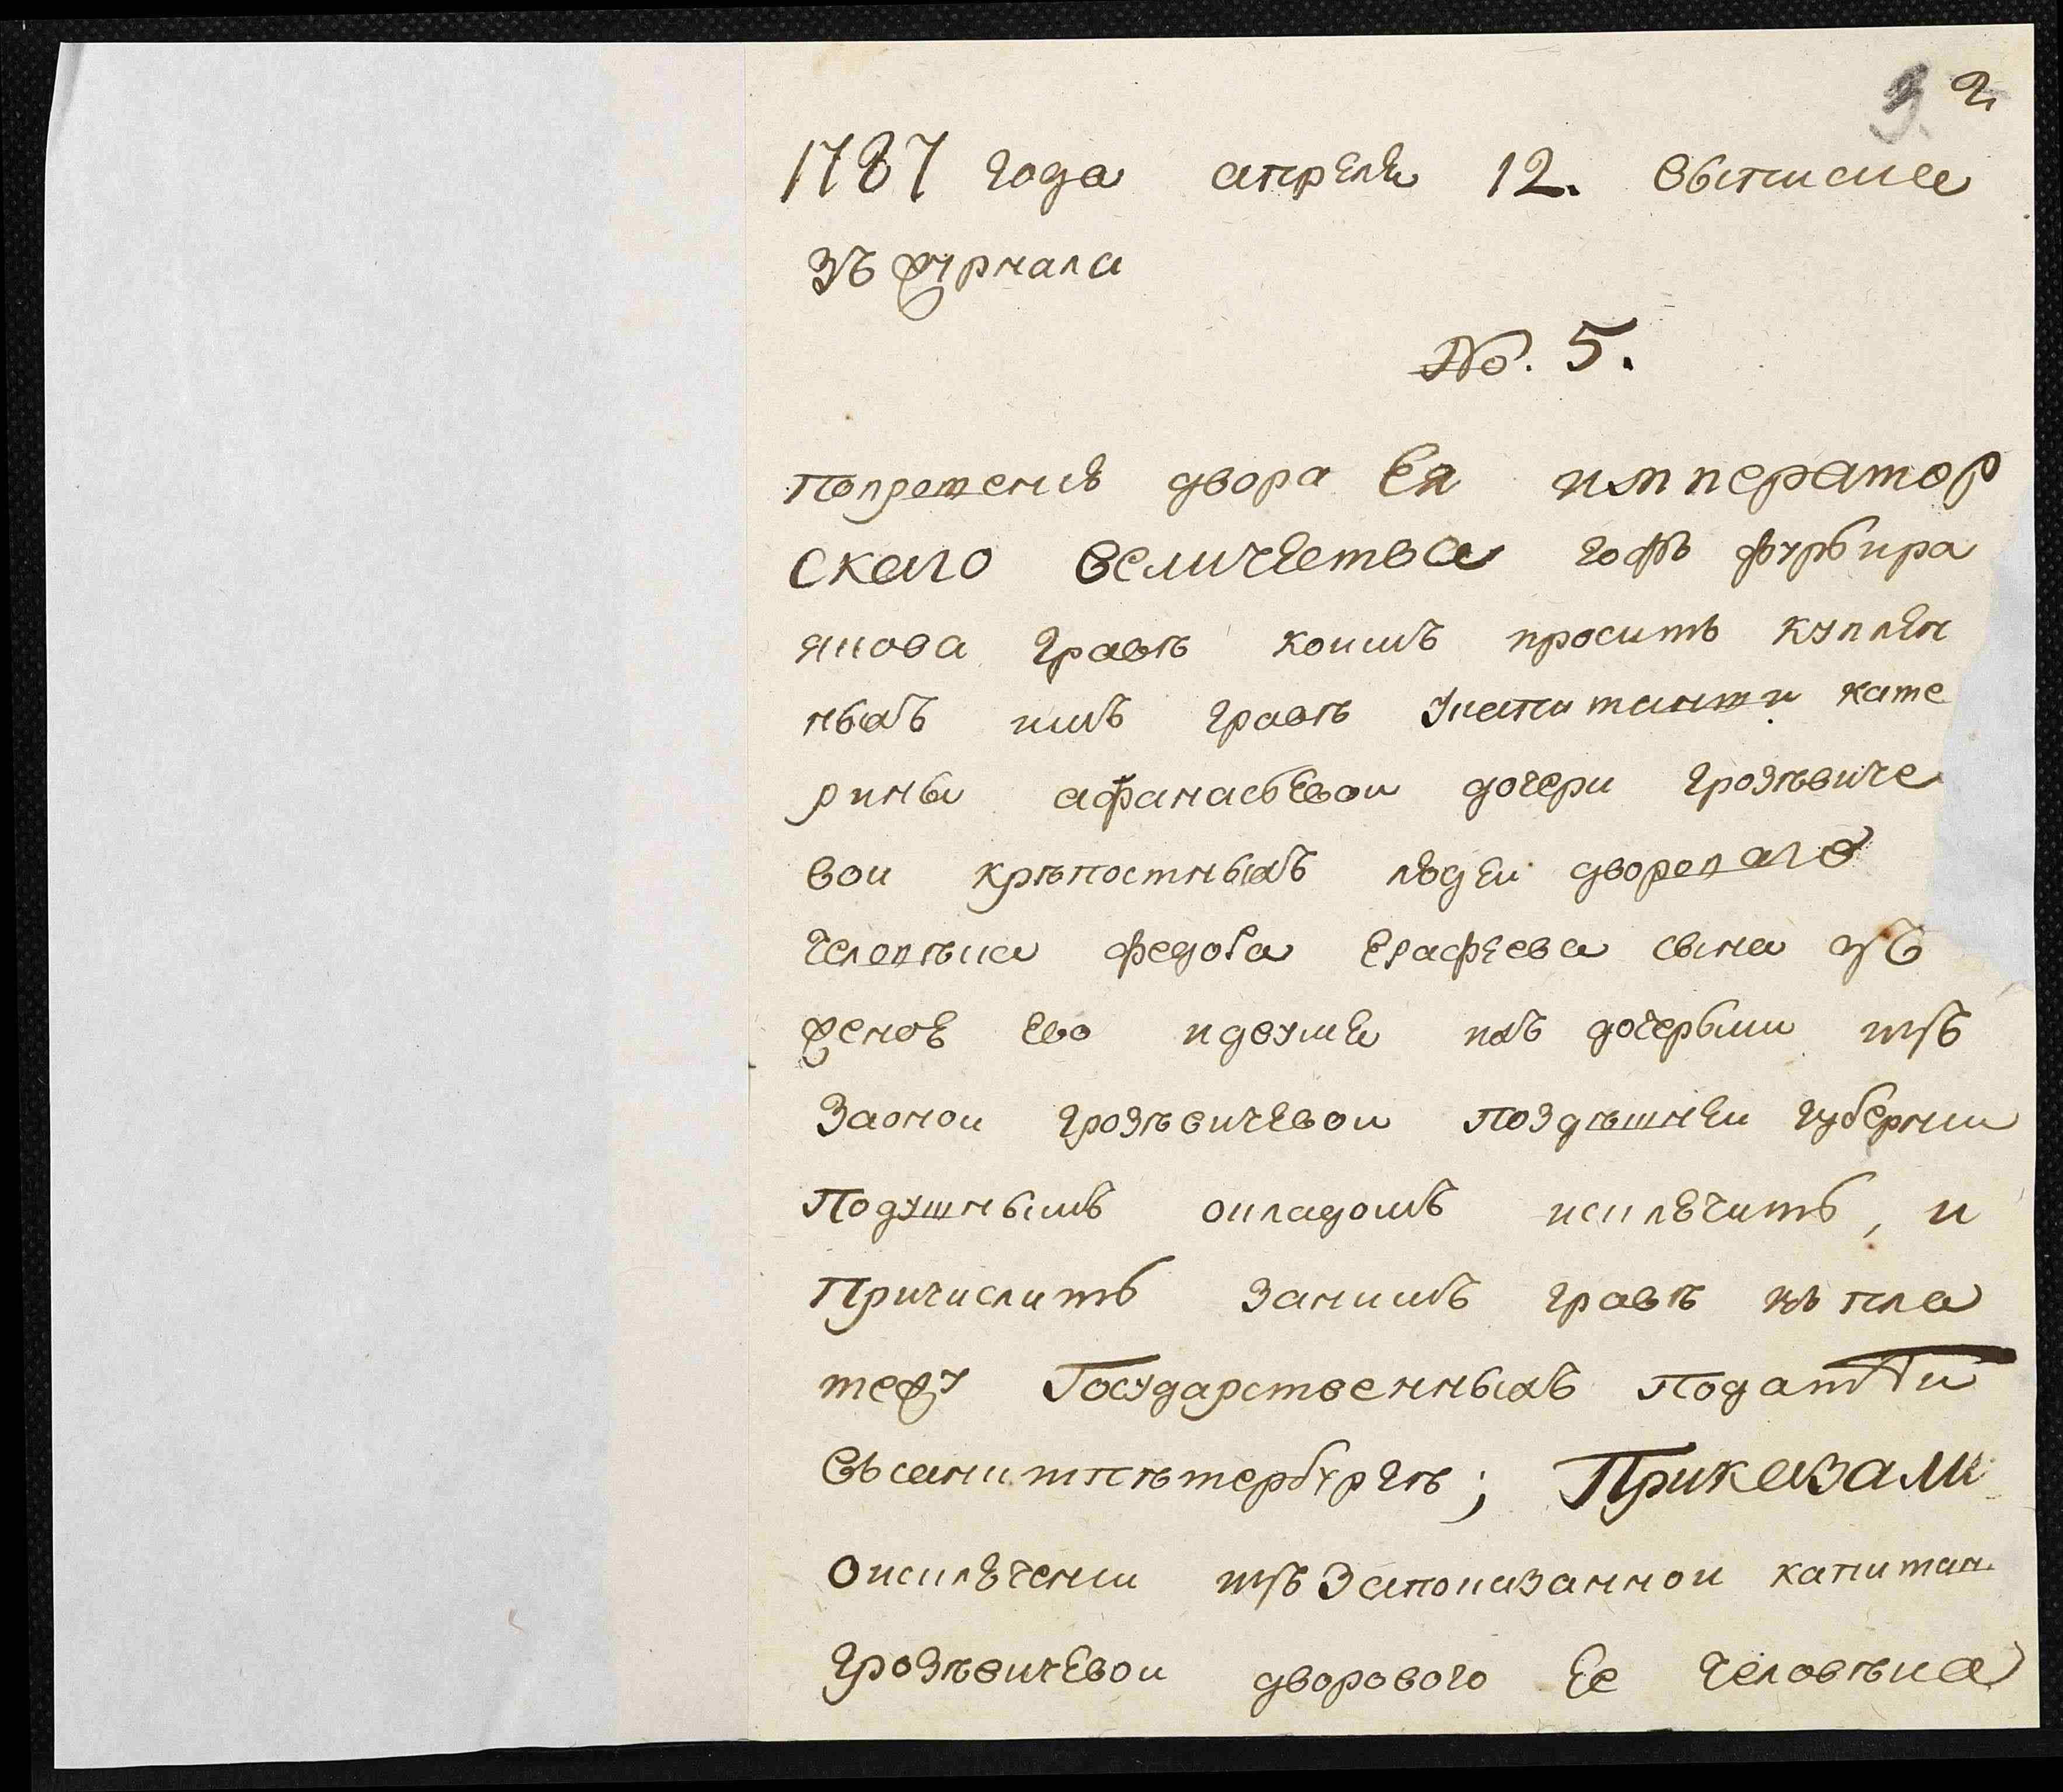 2
1787 года апреля 12. выписка
зъ журнала
№. 5.
попрошенію двора Ея император
скаго величества гофъ фурьира
янова гравъ коимъ проситъ куплен
ныхъ имъ гравъ укапитанши кате
рины афанасьевои дочери грозъвиче
вои крѣпостныхъ людеи дворовагѡ
человѣка федота Ерафѣева сына зъ
женою ево идвумя ихъ дочерьми изъ
Заонои грозѣвичевои поздѣшнеи губернии
Подушнымъ окладомъ исключить, и
Причислить занимъ гравѣ къ пла
тежу Государственныхъ податеи
въсанктпѣтербургѣ; Приказали
оисключении изъ запоказаннои капитан
грозѣвичевои дворового Ее человѣка